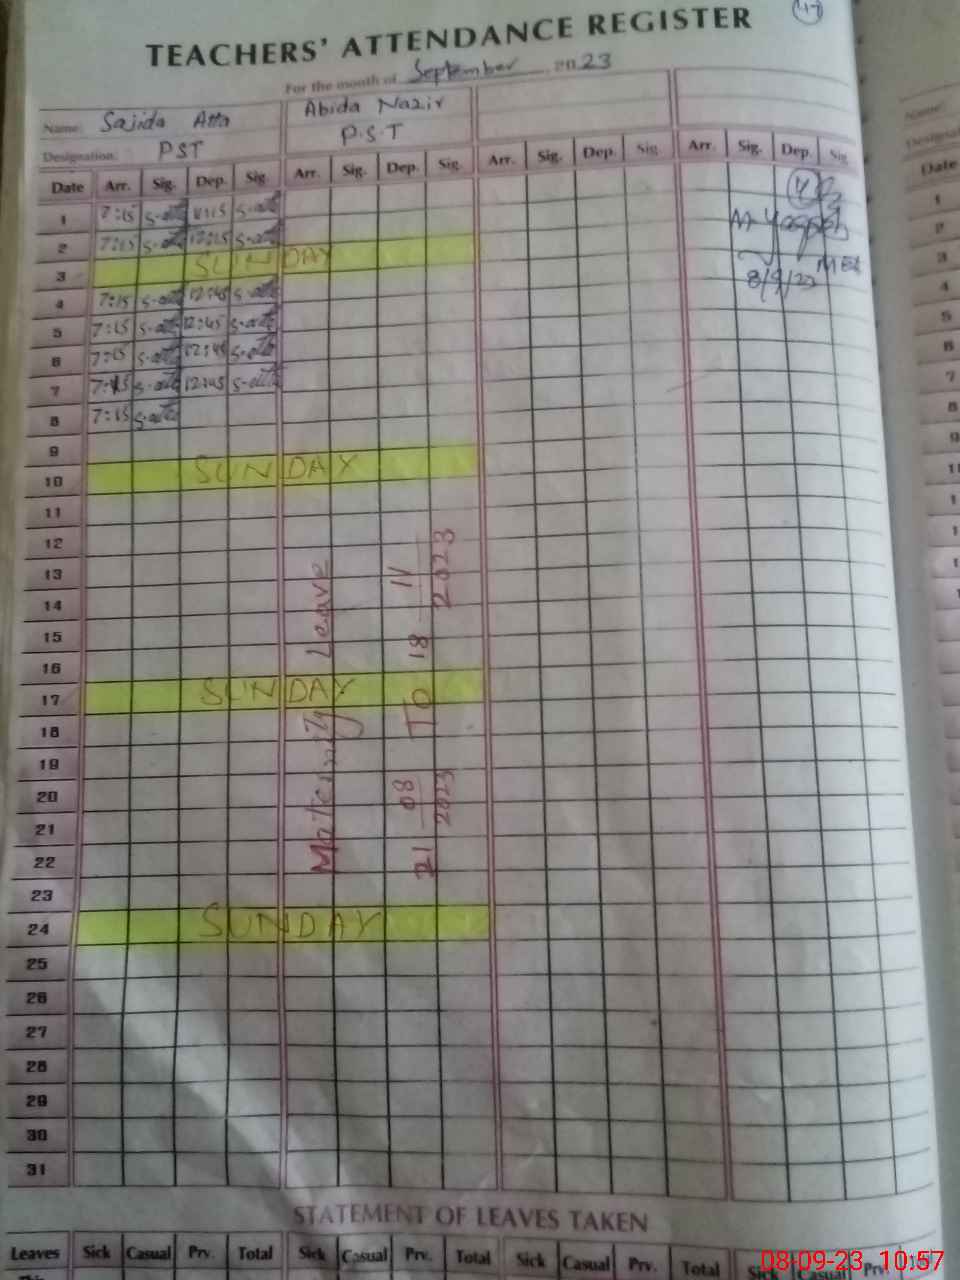 47
TEACHERS' ATTENDANCE REGISTER
For the month of September 2023
Name: Sajida Atta Abida Nazir
Designation: PST P.S.T
Date Arr. Sig. Dep. Sig. Arr. Sig. Dep. Sig. Arr. Sig. Dep. Sig Arr. Sig. Dep. Sig
1 7:15 S-atta S-atta
2 7:15 S-atta 12:15 S-atta
3 SUNDAY
4 7:15 S-atta 12:45 S-atta
5 7:15 S-atta 12:45 S-atta
6 7:15 S-atta 12:45 S-atta
7 7:15 S-atta 12:45 S-atta
8 7:15 S-atta
9
10 SUNDAY
11
12
13
14
15
16
17 SUNDAY
18
19
20
21
22
23
24 SUNDAY
25
26
27
28
29
30
31
Maternity Leave
21-08-2023 TO 18-11-2023
MEA
8/9/23
STATEMENT OF LEAVES TAKEN
Leaves Sick Casual Prv. Total Sick Casual Prv. Total Sick Casual Prv. Total Sick Casual Prv.
Name:
Date
1
2
3
4
5
6
7
8
9
08-09-23 10:57